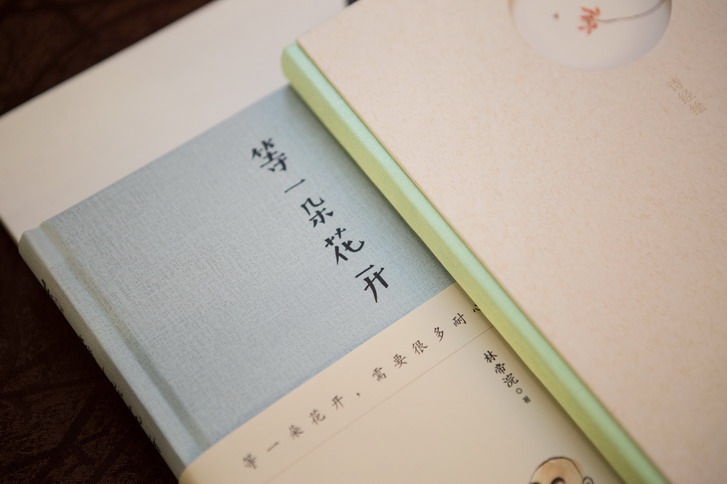 等一朵花开
等一朵花开，需要很多耐心
林帝浣◎著
诗经绘